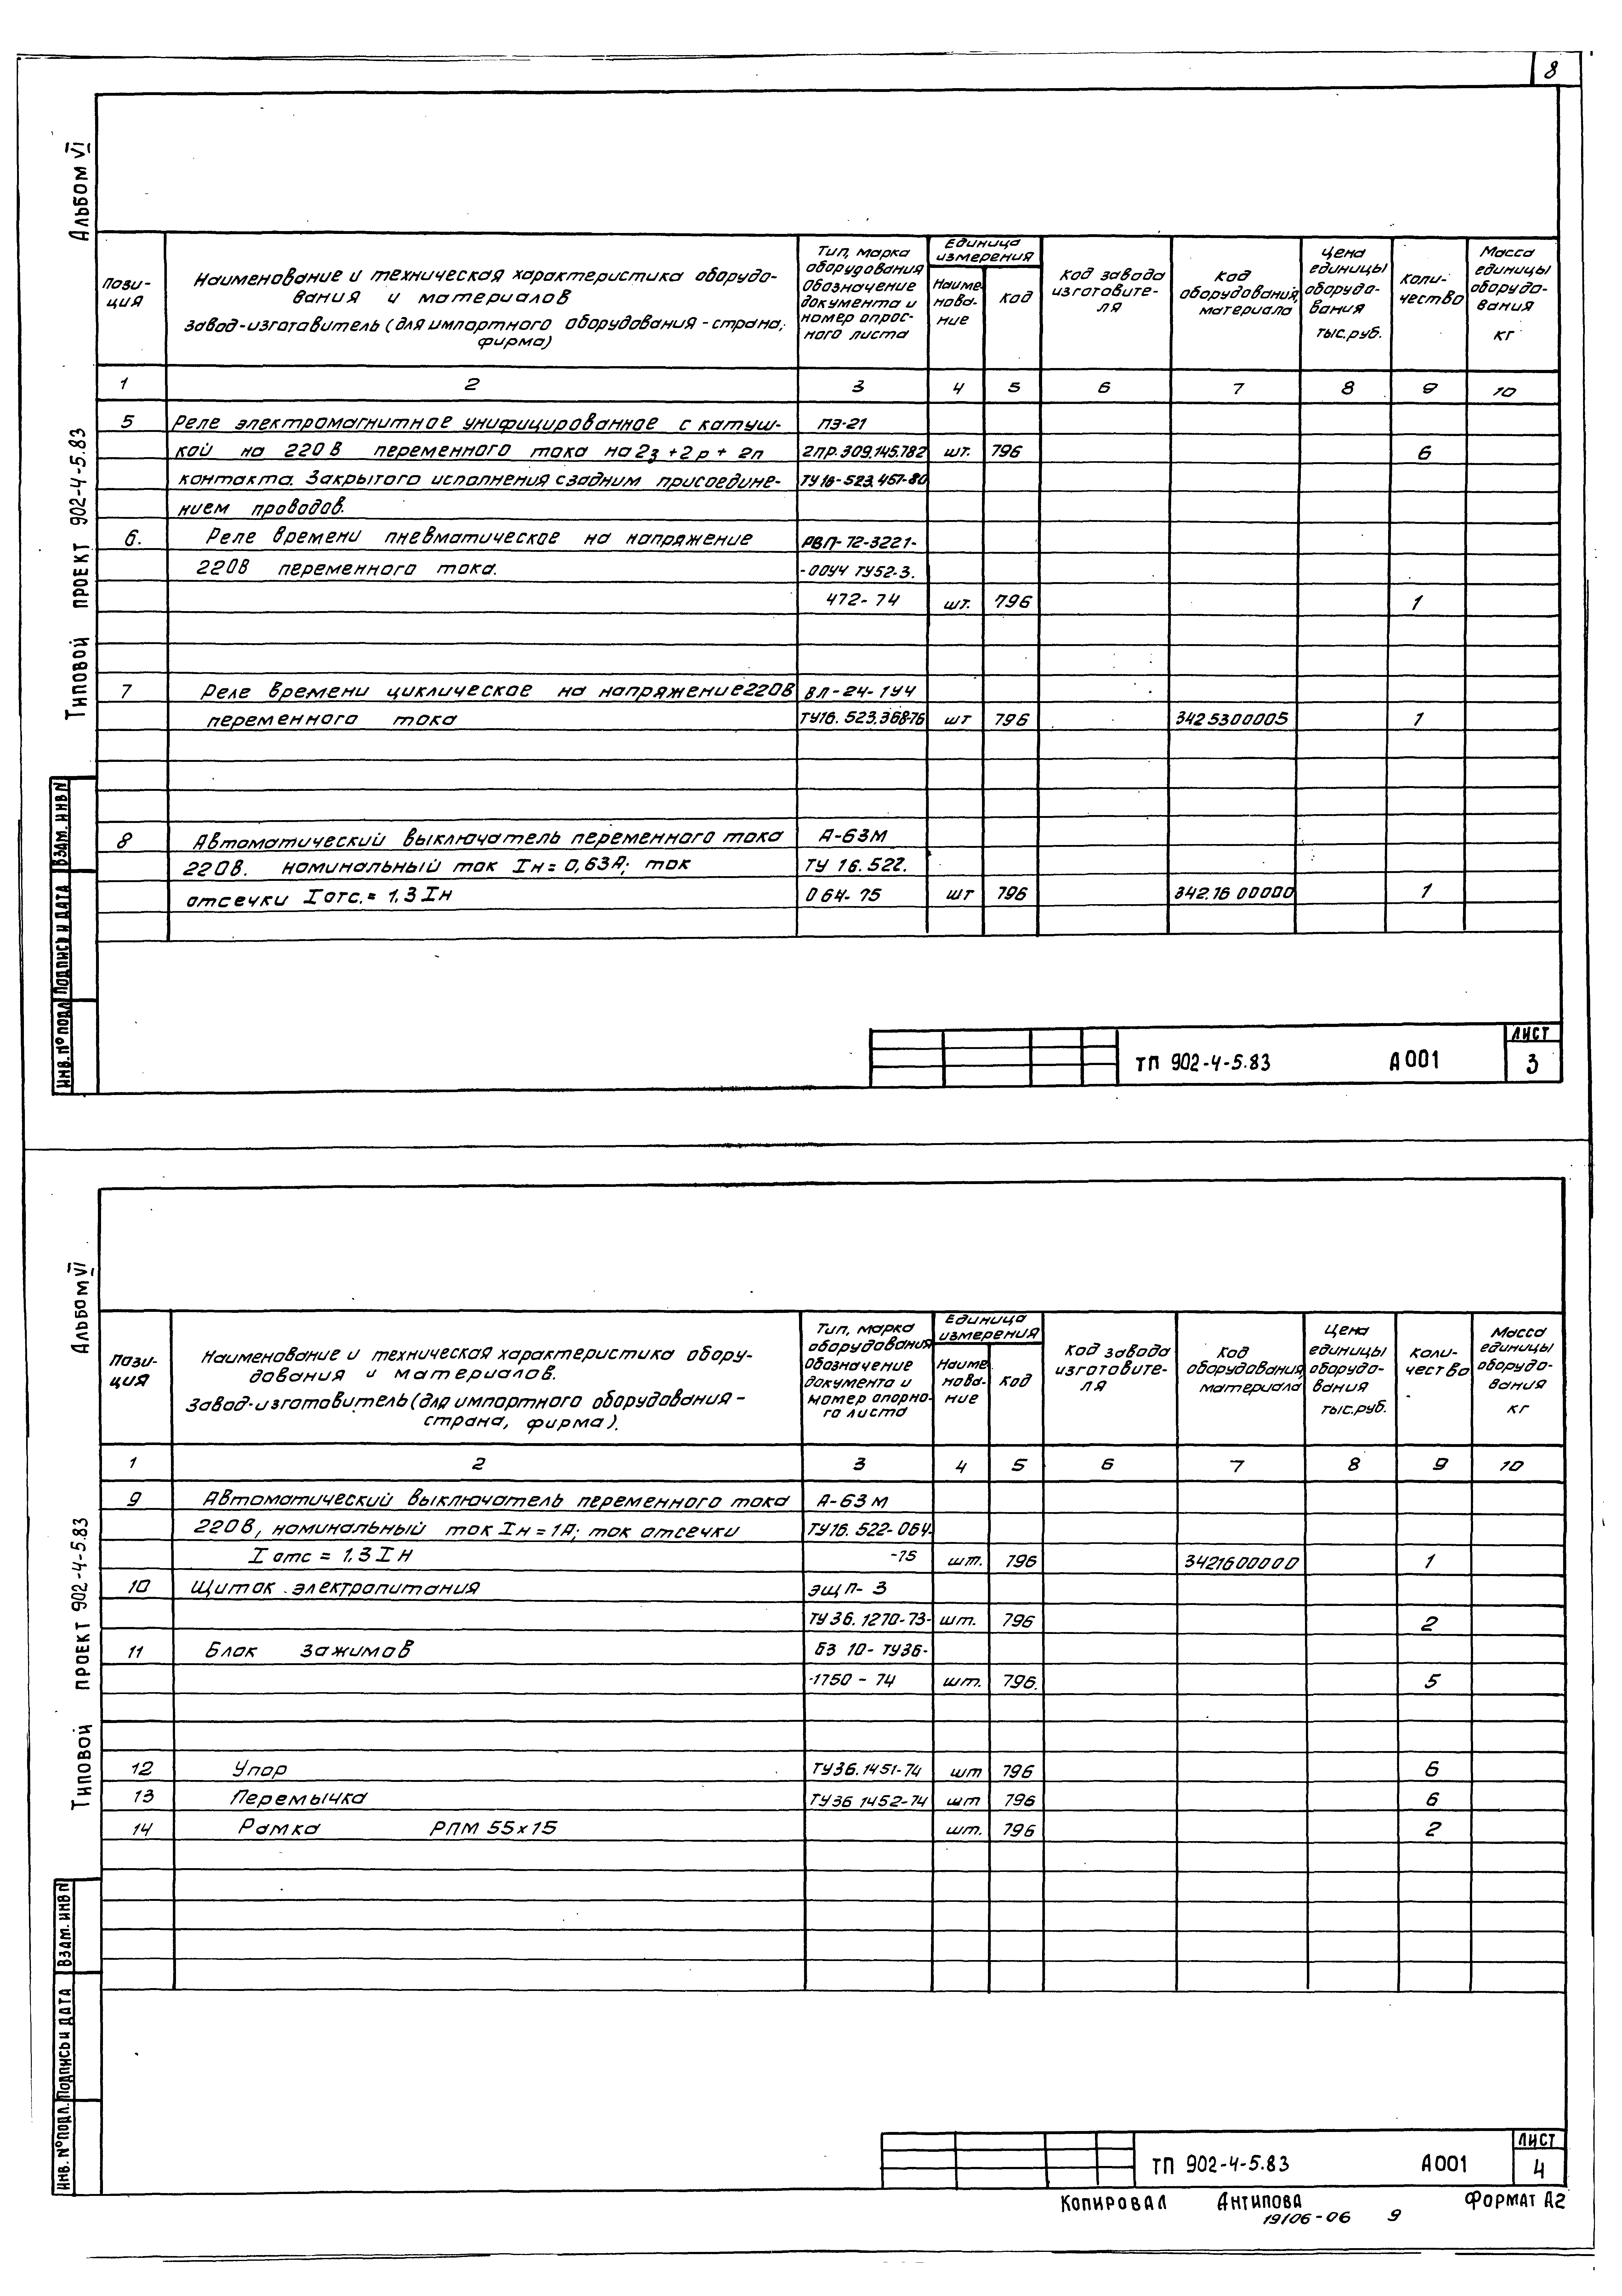 8
Альбом VI
Типовой проект 902-4-5.83
Пози-
ция
Наименование и техническая характеристика оборудо-
вания и материалов
Завод-изготовитель (для импортного оборудования - страна,
фирма)
Тип, марка
оборудования
Обозначение
документа и
номер опрос-
ного листа
Единица
измерения
Наиме-
нова-
ние
Код
Код завода
изготовите-
ля
Код
оборудования,
материала
Цена
единицы
оборудо-
вания
тыс.руб.
Коли-
чество
Масса
единицы
оборудо-
вания
кг
1 2 3 4 5 6 7 8 9 10
5 Реле электромагнитное унифицированное с катуш- ПЭ-21
кой на 220В переменного тока на 2з+2р+2п 2ПР.309.145.782 шт. 796 6
контакта. Закрытого исполнения с задним присоедине- ТУ16-523.457-80
нием проводов.
6. Реле времени пневматическое на напряжение РВП-72-3221-
220В переменного тока. -00У4 ТУ52-3.
472-74 шт. 796 1
7 Реле времени циклическое на напряжение 220В ВЛ-24-1У4
переменного тока ТУ16.523.368-76 шт 796 3425300005 1
8 Автоматический выключатель переменного тока А-63М
220В. номинальный ток Iн=0,63А; ток ТУ 16.522.
отсечки Iотс.=1.3Iн 064-75 шт 796 342.16 00000 1
Взам. инв N
Подпись и дата
Инв. N° подл
ТП 902-4-5.83 А001
Лист
3
Альбом VI
Типовой проект 902-4-5.83
Пози-
ция
Наименование и техническая характеристика обору-
дования и материалов.
Завод-изготовитель (для импортного оборудования -
страна, фирма).
Тип, марка
оборудования
Обозначение
документа и
номер опорно-
го листа
Единица
измерения
Наиме
нова-
ние
Код
Код завода
изготовите-
ля
Код
оборудования,
материала
Цена
единицы
оборудо-
вания
тыс.руб.
Коли-
чество
Масса
единицы
оборудо-
вания
кг
1 2 3 4 5 6 7 8 9 10
9 Автоматический выключатель переменного тока А-63М
220В, номинальный ток Iн=1А; ток отсечки ТУ16.522-064.
Iотс = 1.3Iн -75 шт. 796 3421600000 1
10 Щиток электропитания ЭЩП-3
ТУ36.1270-73- шт. 796 2
11 Блок зажимов БЗ 10- ТУ36-
-1750-74 шт. 796. 5
12 Упор ТУ36.1451-74 шт 796 6
13 Перемычка ТУ36 1452-74 шт 796 6
14 Рамка РПМ 55х15 шт. 796 2
Взам. инв N
Подпись и дата
Инв. N° подл.
ТП 902-4-5.83 А001
Лист
4
Копировал Антипова Формат А2
19106-06 9